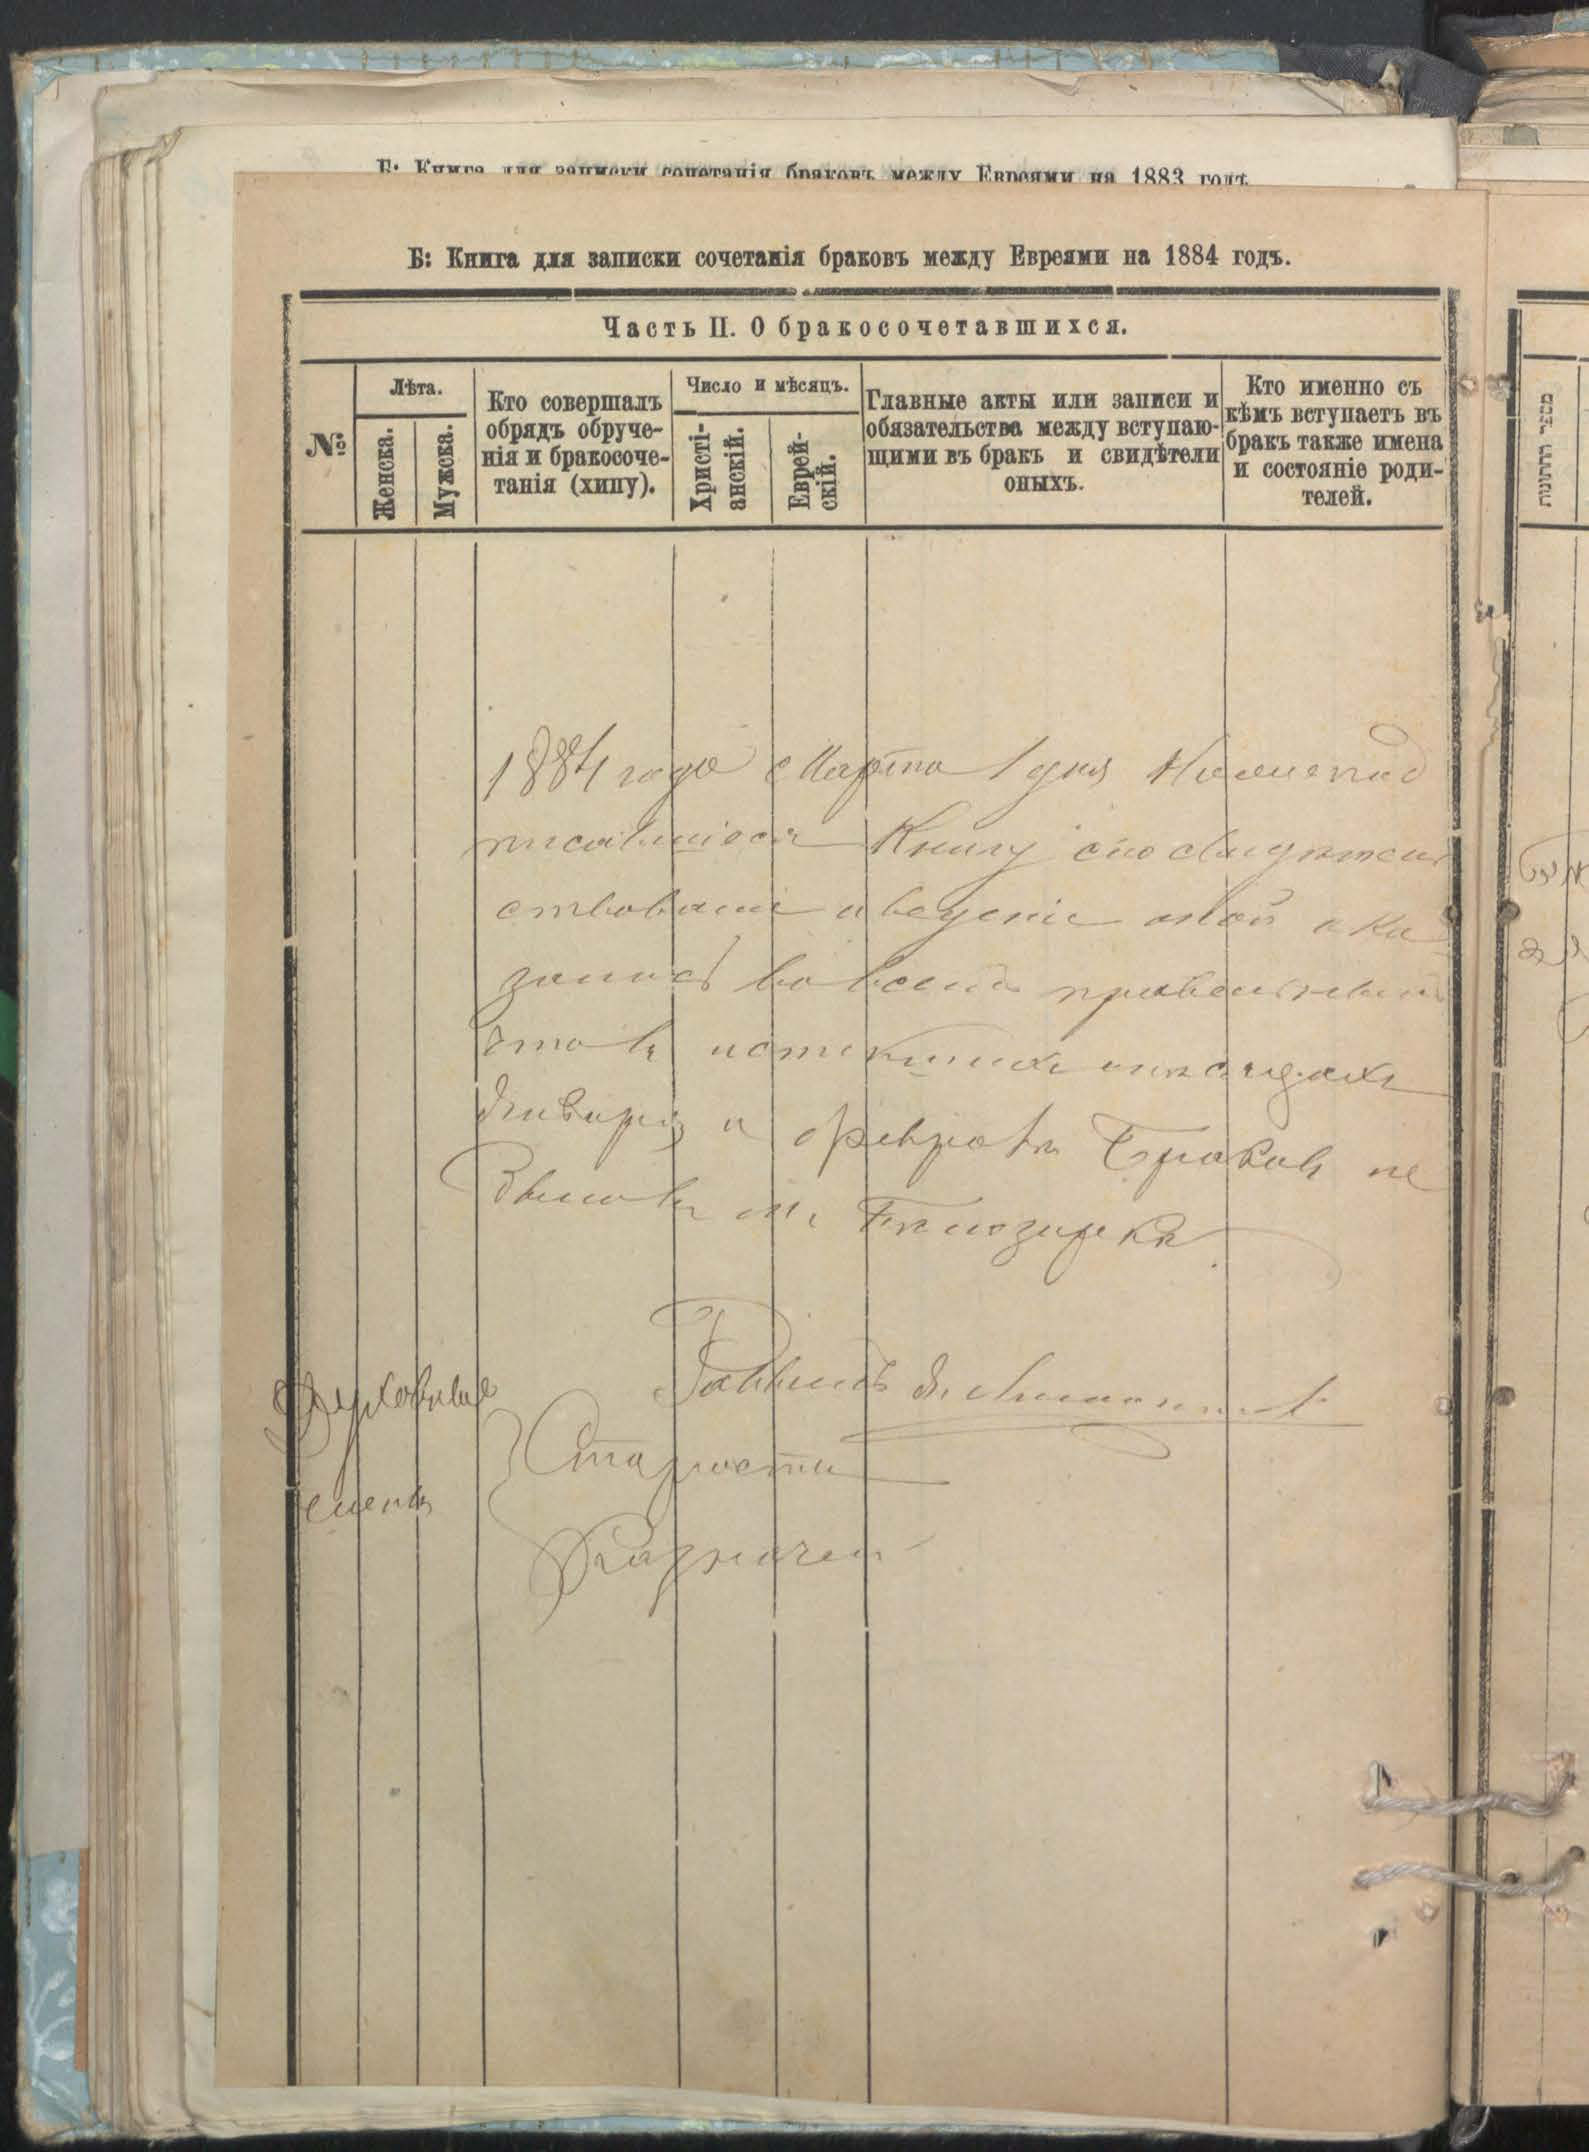 Б: Книга для записки сочетанія браковъ между Евреями на 1883 годъ
Б: Книга для записки сочетанія браковъ между Евреями на 1884 годъ.
Часть II. О бракосочетавшихся.
№
Лѣта.
Женска.
Мужска.
Кто совершалъ
обрядъ обруче-
нія и бракосоче-
танія (хипу).
Число и мѣсяцъ.
Христі-
анскій.
Еврей-
скій.
Главные акты или записи и
обязательства между вступаю-
щими въ бракъ и свидѣтели
оныхъ.
Кто именно съ
кѣмъ вступаетъ въ
бракъ также имена
и состояніе роди-
телей.
1884 года Марта 1 дня
Книгу сію свидѣтель
ствовали и веденіе оной ока
залось во всемъ
что въ истекшихъ мѣсяцахъ
Январѣ и Февралѣ Браковъ не
было въ м. Бѣлозиркѣ
Раввинъ
Духовные
члены
Староста
Казначей